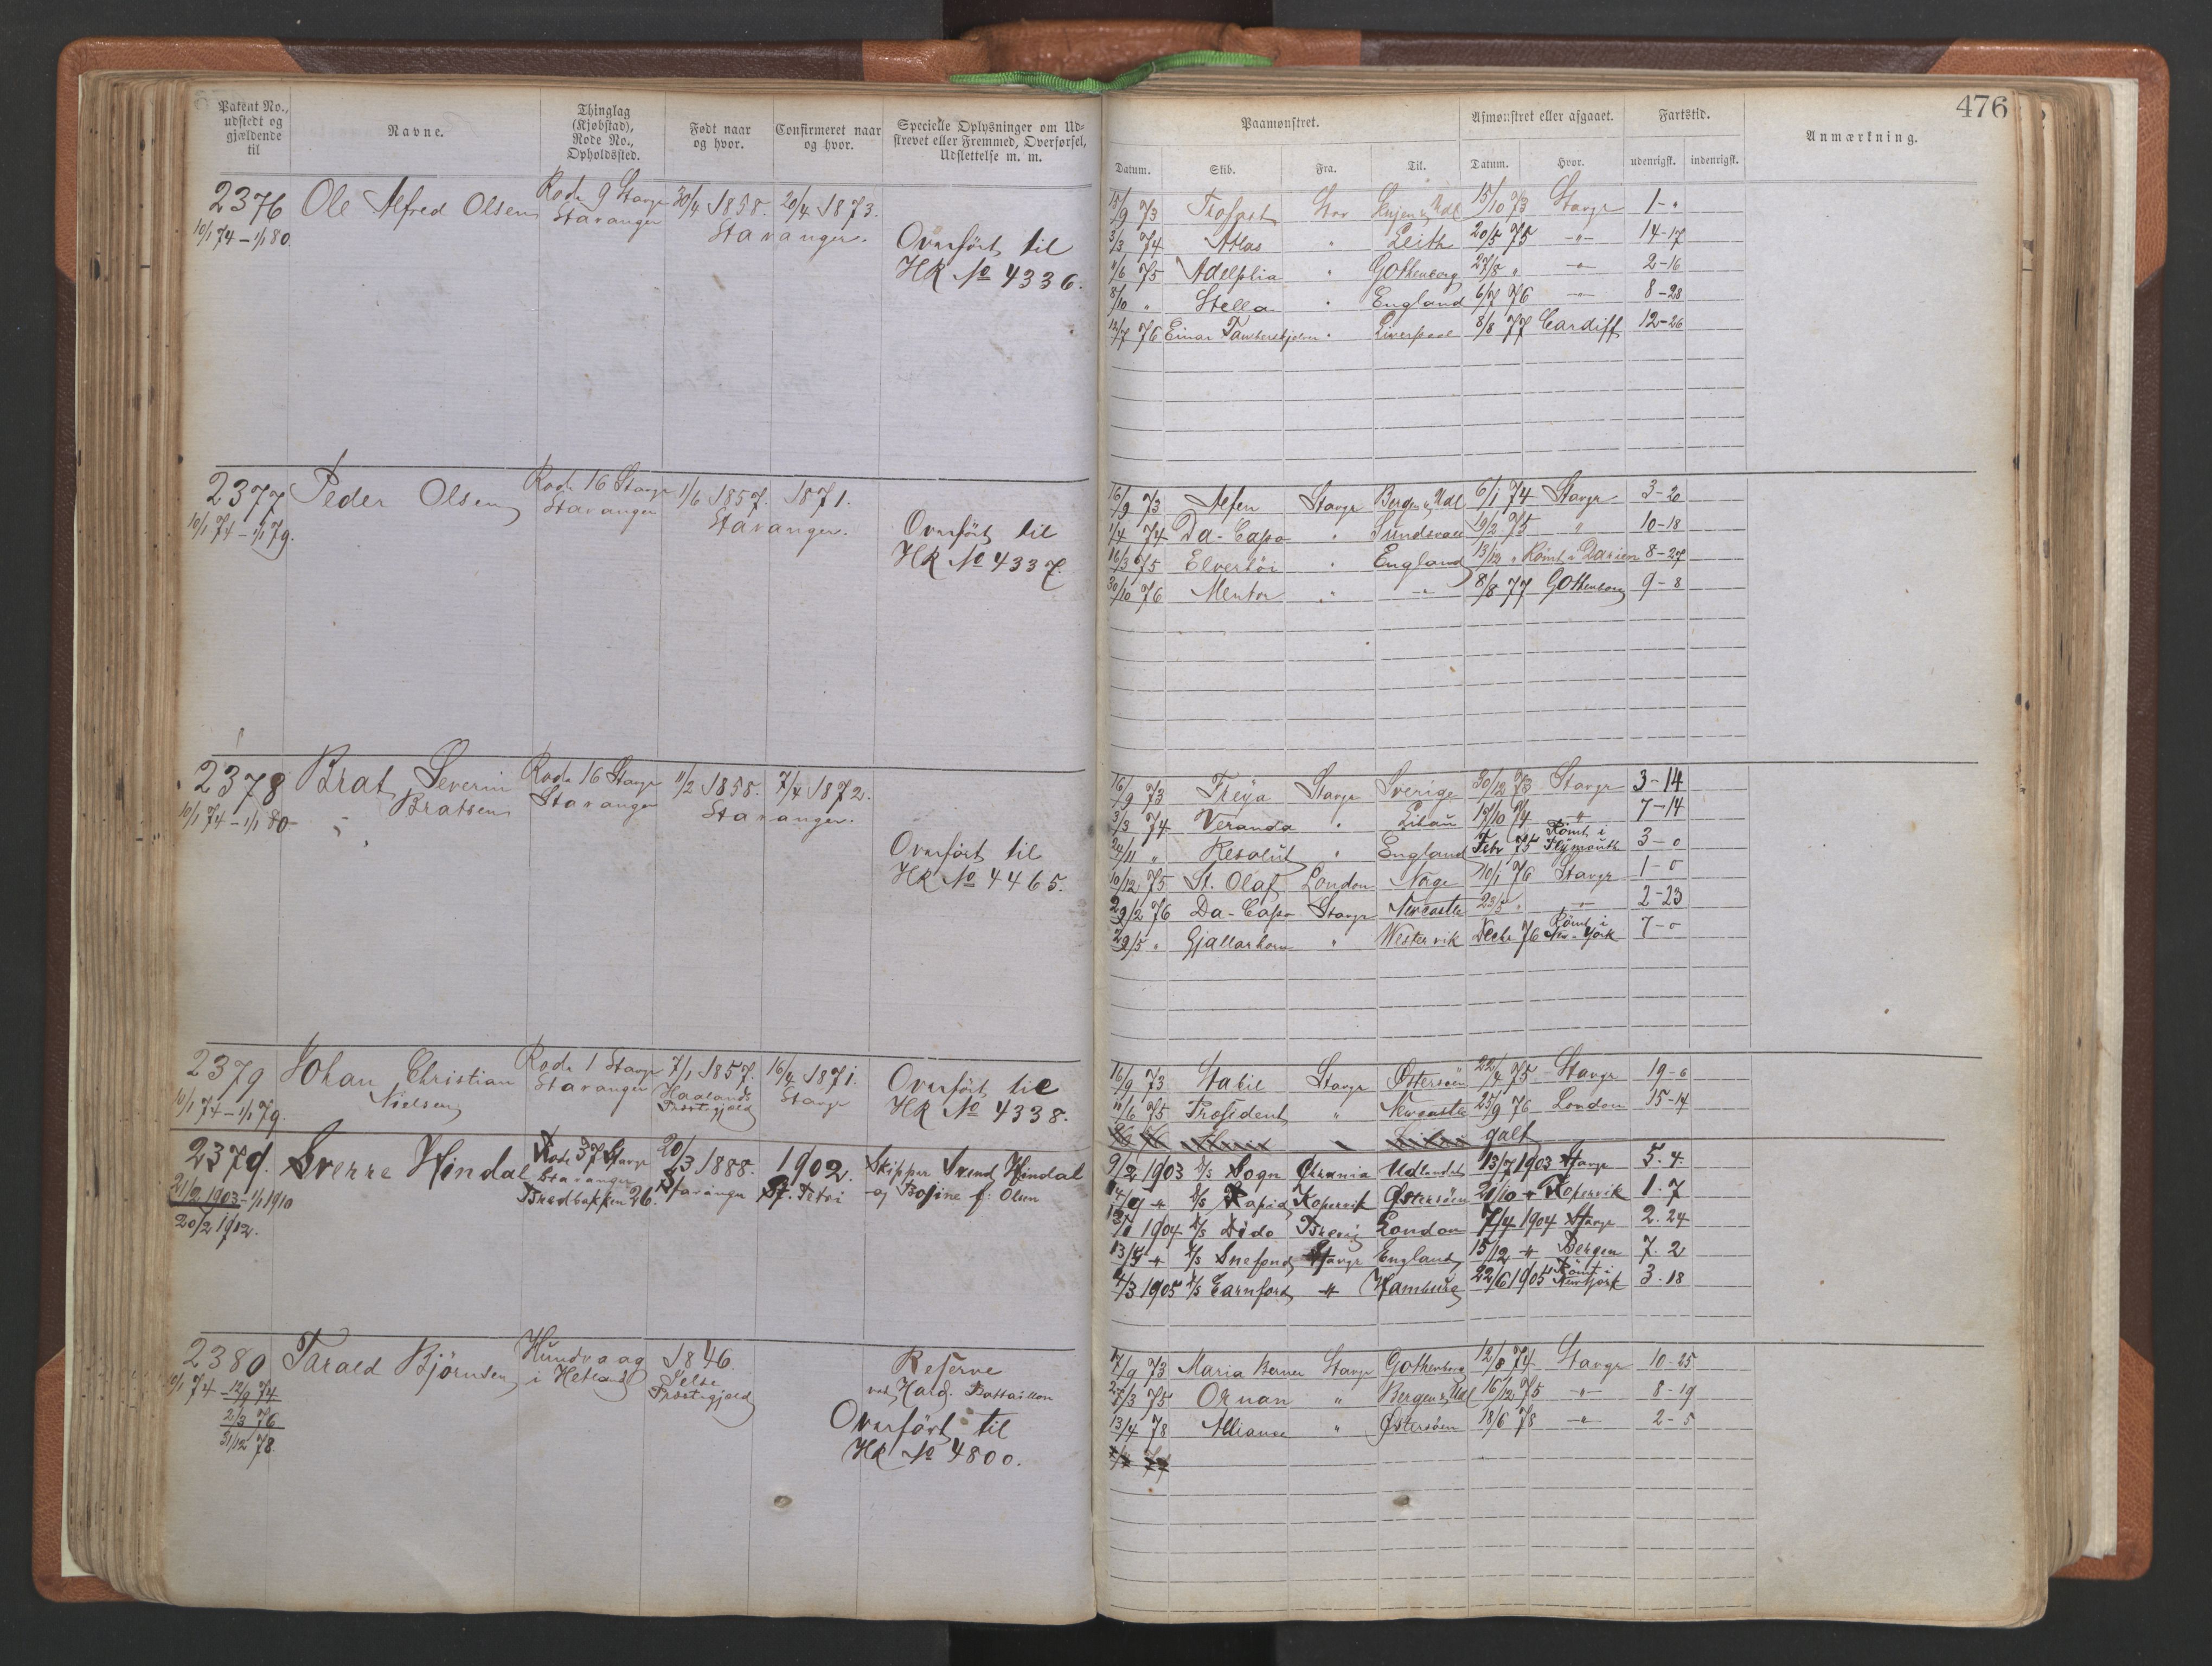 476
Patent No., udstedt og gjældende til
Navne.
Thinglag (Kjøbstad), Rode No., Opholdssted.
Født naar og hvor.
Confirmeret naar og hvor.
Specielle Oplysninger om Udstrevet eller Fremmed, Overførsel, Udslettelse m. m.
Paamønstret.
Afmønstret eller afgaaet.
Fartstid.
Anmærkning.
Datum. Skib. Fra. Til. Datum. Hvor. udenrigsk. indenrigsk.
2376 Ole Alfred Olsen Rode 9 Stavgr 30/4 1858. 20/4 1873.
10/1 74 – 1/1 80. Stavanger Stavanger.
Overført til
HR No 4336.
15/9 73 Trofast Stav & Udl 15/10 73 Stavgr 1 - "
3/3 74 Atlas " Leith 20/5 75 - " - 14-17
11/6 75 Adelphia " Gothenborg 27/8 " - " - 2-16
8/10 " Stella " England 6/7 76 - " - 8-28
12/7 76 Einar Tamberskjelver " Liverpool 8/8 77 Cardiff 12-26
2377 Peder Olsen Rode 16 Stavgr 1/6 1857. 1871.
10/1 74 – 1/1 79. Stavanger Stavanger.
Overført til
HR No 4337.
16/9 73 Stavgr Bergen & Udl 6/1 74 Stavgr 3-20
1/4 74 Da-Capo " Sundsvall 19/2 75 " 10-18
16/3 75 England 13/12 " Rømt i Darien 8-27
30/10 76 Mentor " - " - 8/8 77 Gothenborg 9-8
2378 Brat Severin Rode 16 Stavgr 11/2 1858. 7/4 1872.
10/1 74 – 1/1 80 Bratsen Stavanger Stavanger.
Overført til
HR No 4465.
16/9 73 Freya Stavgr Sverige 30/12 73 Stavgr 3-14
3/3 74 Veranda " Libau 17/10 74 " 7-14
24/11 " Resolut " England Febr 75 Rømt i Plymouth 3-0
10/12 75 St. Olaf London Norge 10/1 76 Stavgr 1-0
29/2 76 Da-Capo Stavgr Newcastle 23/5 " - " - 2-23
29/5 " Gjallarhorn " Westervik Decbr 76 Rømt i New-York 7-0
2379 Johan Christian Rode 1 Stavgr 7/1 1857. 16/4 1871.
10/1 74 – 1/1 79. Nielsen Stavanger Haalands Præstegjeld Stavgr
Overført til
HR No 4338.
16/9 73 Stabil Stavgr Østersøen 22/4 75 Stavgr 19-6
11/6 75 President " Newcastle 25/9 76 London 15-14
galt
2379. Sverre Hindal Rode 37 Stavgr 20/3 1888. 1902. Skipper Svend Hindal
21/2 1903 – 1/1 1910 Stavanger Stavanger St. Petri og Bosine f: Olsen
20/2 1912. Bredbakken 26.
9/2 1903 D/S Sogn Chrania Udlandet 13/7 1903 Stavgr 5. 4.
14/9 " D/S Rapid Kopervik Østersøen 21/10 " Kopervik 1. 7
1904 D/S Dido Brevig London 7/4 1904 Stavgr 2. 24
13/5 " D/S Snefond Stavgr England 15/12 " Bergen 7. 2
4/3 1905 D/S Earnford " Hamburg 22/6 1905 Rømt i Newyork 3. 18
2380 Tarald Bjørnsen Hundvaag 1846.
10/1 74 – 12/9 74 i Hetland Præstegjeld
2/3 76
31/12 78
Reserve
ved Hard. Battaillon
Overført til
HR No 4800.
17/9 73 Maria Berner Stavgr Gothenborg 12/8 74 Stavgr 10-25
27/3 75 Ornan " Bergen & Udl 16/12 75 - " - 8-19
13/4 78 Alliance " Østersøen 18/6 78 - " - 2-5